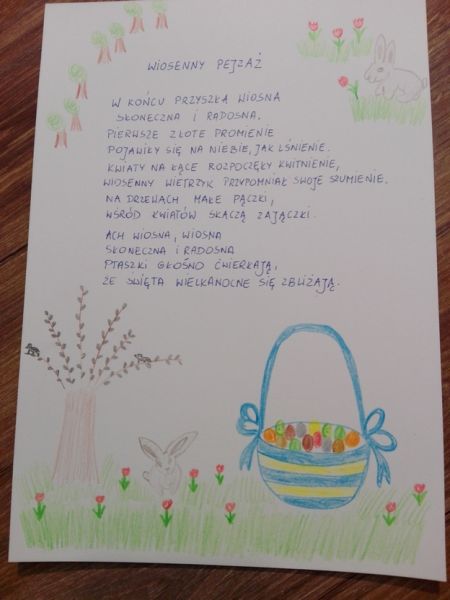 WIOSENNY PEJZAŻ
W KOŃCU PRZYSZŁA WIOSNA
SŁONECZNA I RADOSNA.
PIERWSZE ZŁOTE PROMIENIE
POJAWIŁY SIĘ NA NIEBIE, JAK LŚNIENIE.
KWIATY NA ŁĄCE ROZPOCZĘŁY KWITNIENIE,
WIOSENNY WIETRZYK PRZYPOMNIAŁ SWOJE SZUMIENIE.
NA DRZEWACH MAŁE PĄCZKI,
WŚRÓD KWIATÓW SKACZĄ ZAJĄCZKI.
ACH WIOSNA, WIOSNA
SŁONECZNA I RADOSNA
PTASZKI GŁOŚNO ĆWIERKAJĄ,
ŻE ŚWIĘTA WIELKANOCNE SIĘ ZBLIŻAJĄ.